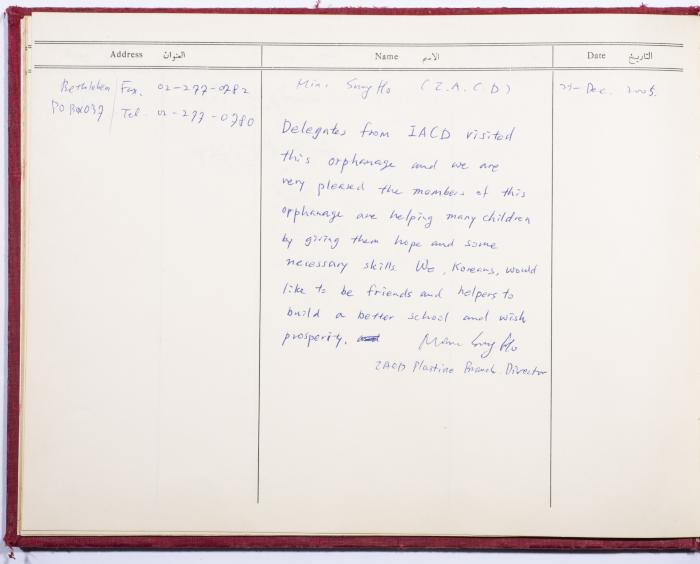 Address العنوان
Name الاسم
Date التاريخ
Bethlehem Fax. 02-277-0782
PO Box 037 Tel. 02-277-0780
Min, Sung Ho (I.A.C.D)
Dec. 2005.
Delegates from IACD visited
this orphanage and we are
very pleased the members of this
orphanage are helping many children
by giving them hope and some
necessary skills We, Koreans, would
like to be friends and helpers to
build a better school and wish
prosperity.
Min Sung Ho
IACD Plastine Branch Director